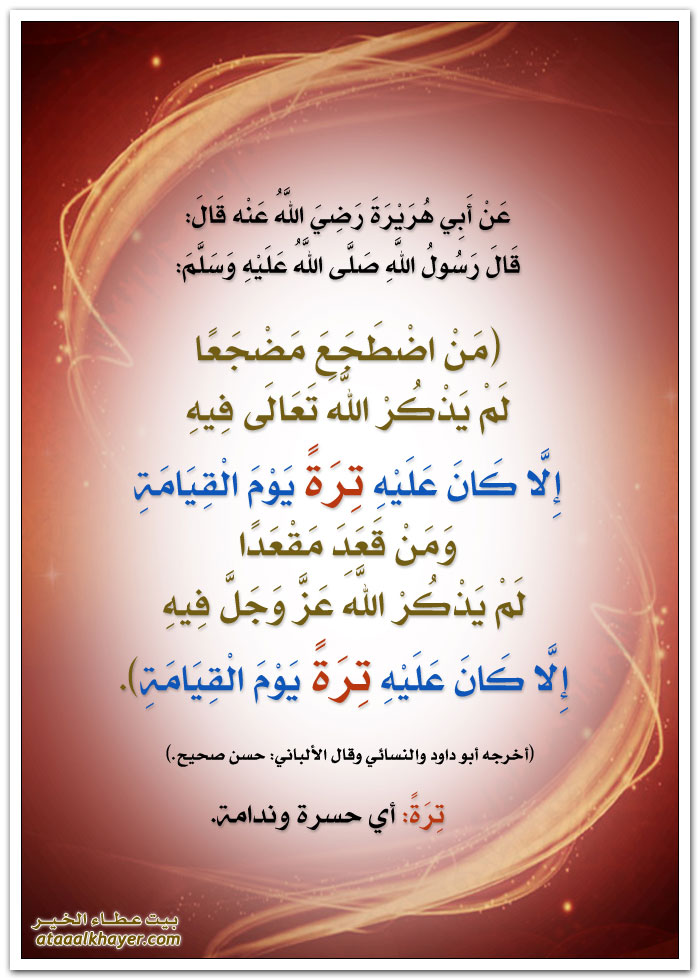 عَنْ أَبِي هُرَيْرَةَ رَضِيَ اللَّهُ عَنْه قَالَ:
قَالَ رَسُولُ اللَّهِ صَلَّى اللَّهُ عَلَيْهِ وَسَلَّمَ:
(مَنْ اضْطَجَعَ مَضْجَعًا
لَمْ يَذْكُرْ اللَّهَ تَعَالَى فِيهِ
إِلَّا كَانَ عَلَيْهِ تِرَةً يَوْمَ الْقِيَامَةِ
وَمَنْ قَعَدَ مَقْعَدًا
لَمْ يَذْكُرْ اللَّهَ عَزَّ وَجَلَّ فِيهِ
إِلَّا كَانَ عَلَيْهِ تِرَةً يَوْمَ الْقِيَامَةِ).
(أخرجه أبو داود والنسائي وقال الألباني: حسن صحيح.)
تِرَةً: أي حسرة وندامة.
بيت عطاء الخير
ataaalkhayer.com